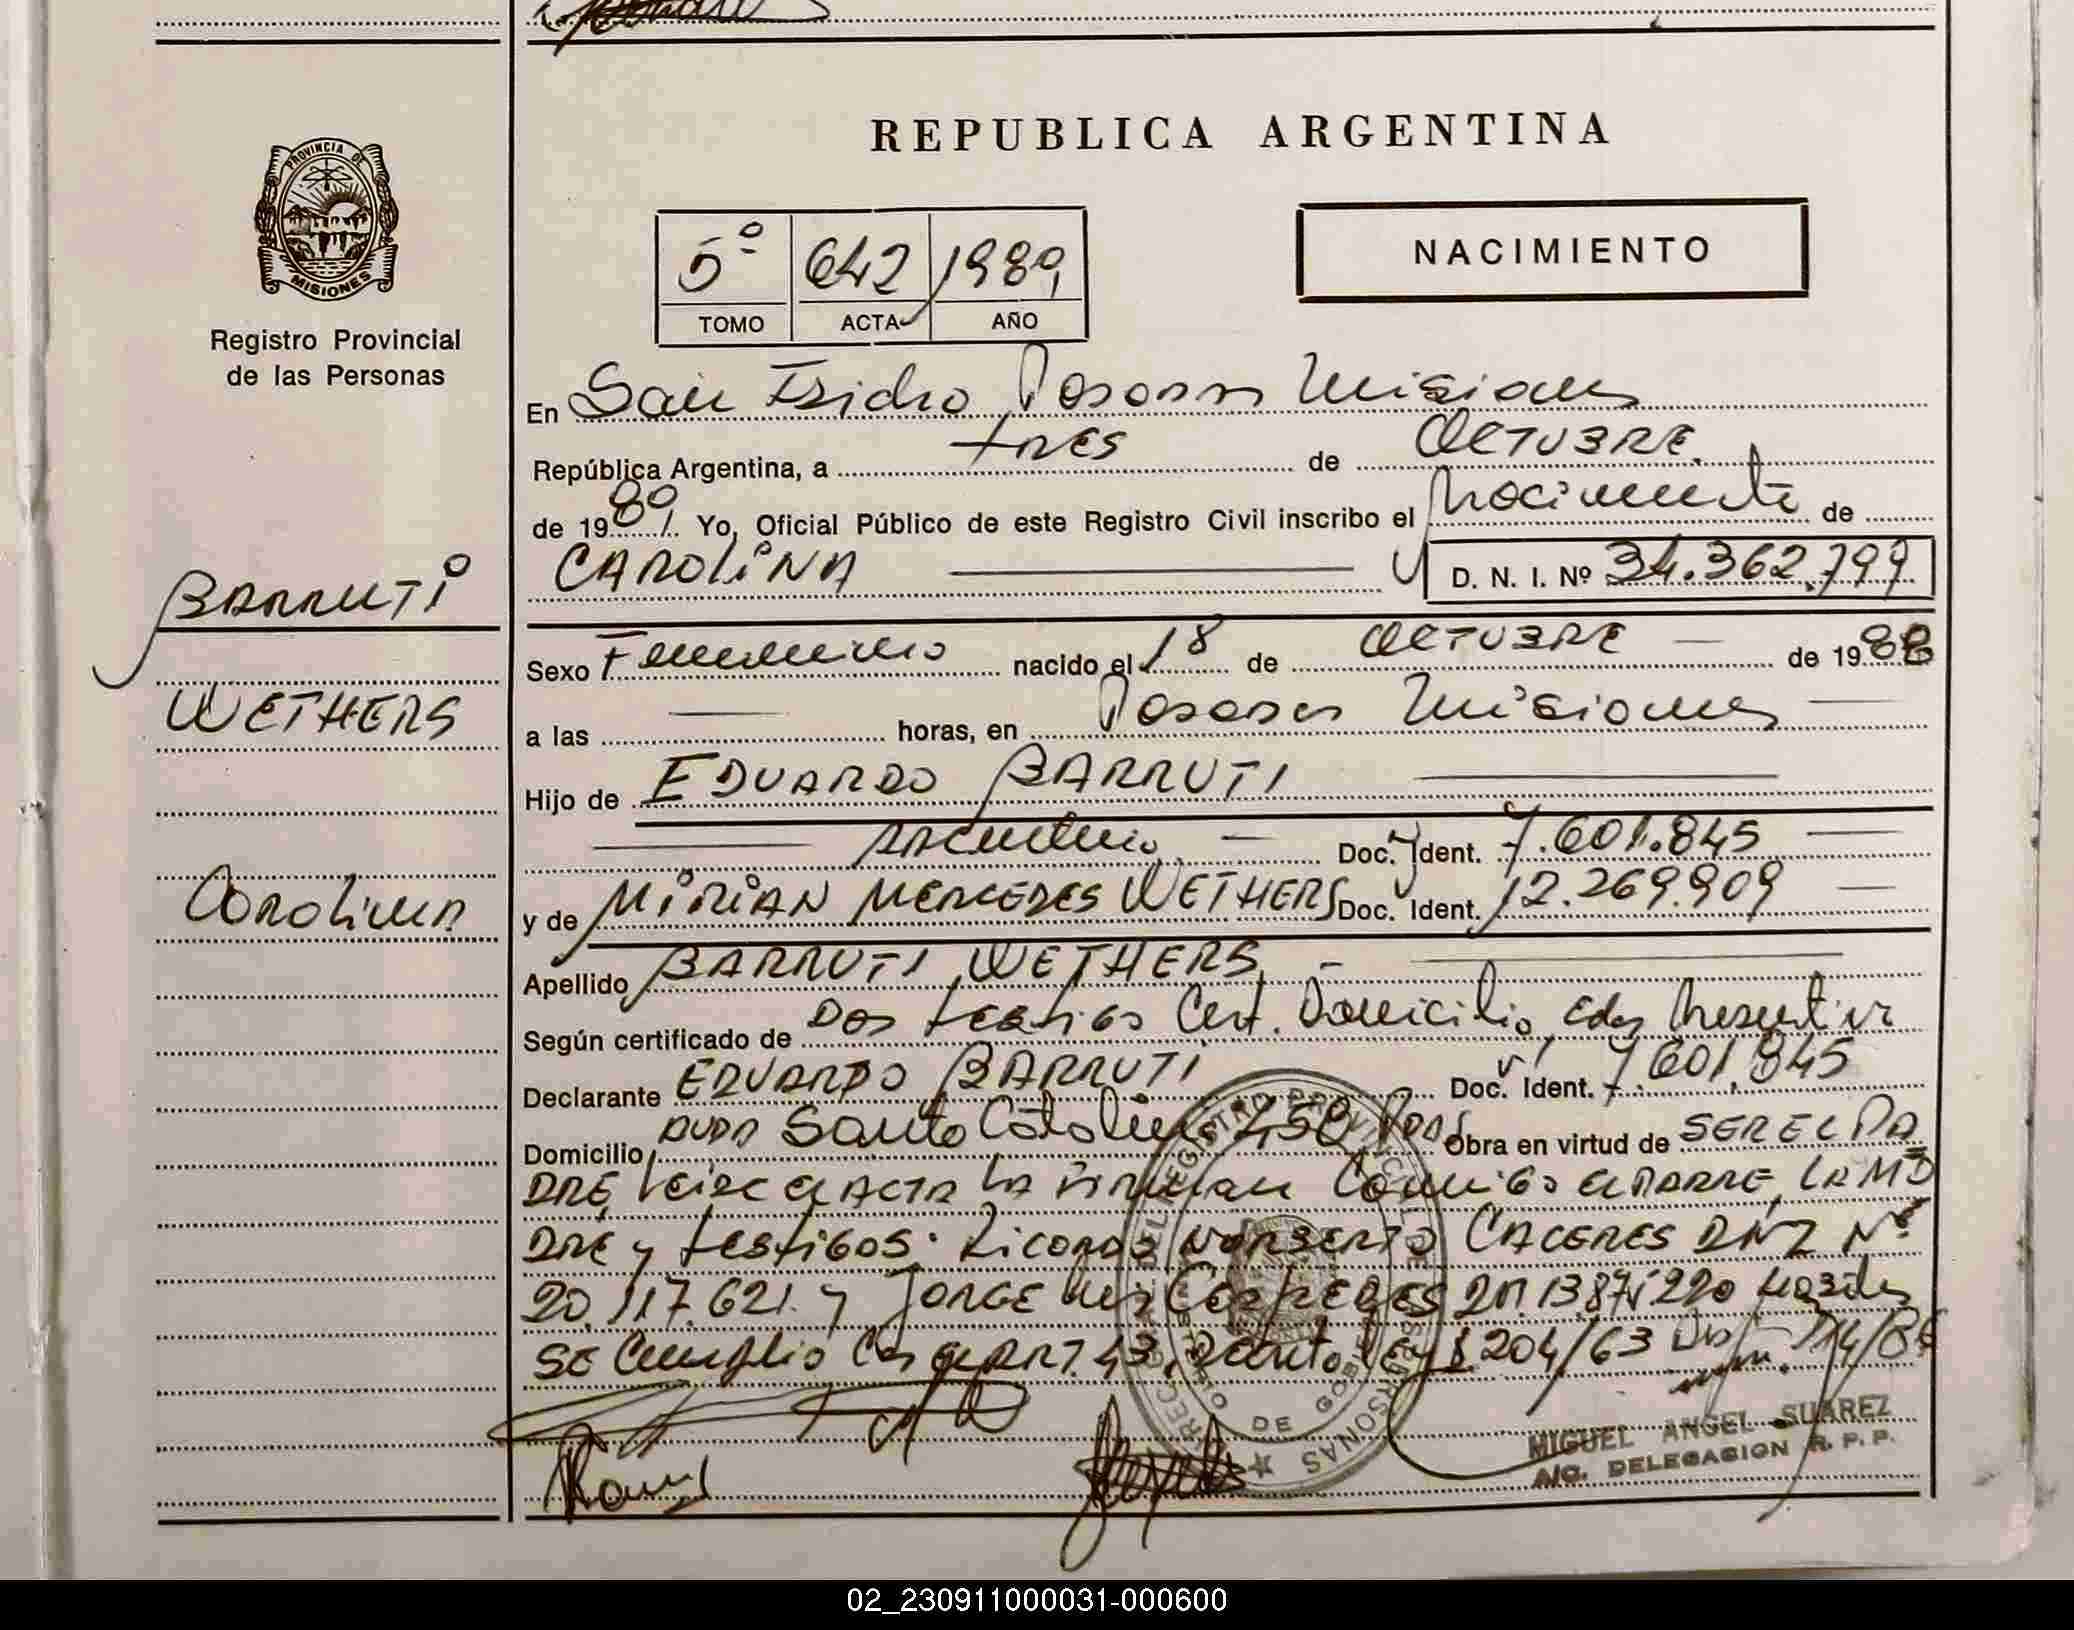 REPUBLICA ARGENTINA
PROVINCIA DE
MISIONES
Registro Provincial
de las Personas
5º 642 1989
TOMO ACTA AÑO
NACIMIENTO
En San Isidro Posadas Misiones
República Argentina, a tres de OCTUBRE
de 1989. Yo, Oficial Público de este Registro Civil inscribo el Nacimiento de
CAROLINA D. N. I. Nº 34.362.799
BARRUTI
WETHERS
Carolina
Sexo Femenino nacido el 18 de OCTUBRE de 1988
a las horas, en Posadas Misiones
Hijo de EDUARDO BARRUTI
Argentino Doc. Ident. 7.601.845
y de MIRIAN MERCEDES WETHERS Doc. Ident. 12.269.909
Apellido BARRUTI WETHERS
Según certificado de Dos testigos Cert. Domicilio
Declarante EDUARDO BARRUTI Doc. Ident. 7.601.845
Domicilio Avda Santa Catalina 450 Pdas Obra en virtud de SER EL PA
DRE, Leida el ACTA la firman Conmigo el PADRE, LA MA
DRE y testigos: Ricardo NORBERTO CACERES DNI Nº
20.117.621 y JORGE Luis Cespedes
SE Cumplio Con el ART. 43 Decreto Ley 8.204/63
MIGUEL ANGEL SUAREZ
A/C. DELEGACION R. P. P.
02_230911000031-000600